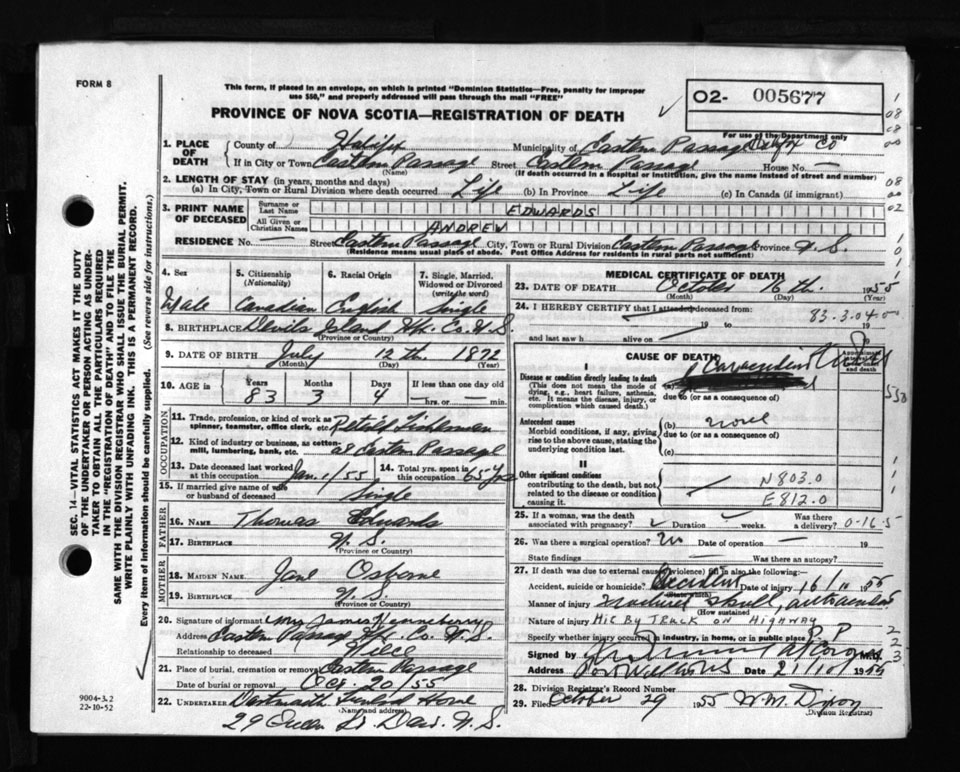 FORM 8
This form, if placed in an envelope, on which is printed "Dominion Statistics—Free, penalty for improper
use $50," and properly addressed will pass through the mail "FREE"
PROVINCE OF NOVA SCOTIA—REGISTRATION OF DEATH
O2- 005677
For use of the Department only
1. PLACE OF DEATH
County of Halifax Municipality of Eastern Passage Halifax Co
If in City or Town Eastern Passage Street Eastern Passage House No. —
(Name) (If death occurred in a hospital or institution, give the name instead of street and number)
2. LENGTH OF STAY (in years, months and days)
(a) In City, Town or Rural Division where death occurred Life (b) In Province Life (c) In Canada (if immigrant)
3. PRINT NAME OF DECEASED
Surname or Last Name EDWARDS
All Given or Christian Names ANDREW
RESIDENCE No. — Street Eastern Passage City, Town or Rural Division Eastern Passage Province N.S.
(Residence means usual place of abode. Post Office Address for residents in rural parts not sufficient)
4. Sex
Male
5. Citizenship (Nationality)
Canadian
6. Racial Origin
English
7. Single, Married, Widowed or Divorced (write the word)
Single
8. BIRTHPLACE Devils Island Hfx. Co. N.S.
(Province or Country)
9. DATE OF BIRTH July 12th. 1872
(Month) (Day) (Year)
10. AGE in Years Months Days If less than one day old
83 3 4 — hrs. or — min.
OCCUPATION
11. Trade, profession, or kind of work as spinner, teamster, office clerk, etc. Retired Fisherman
12. Kind of industry or business, as cotton-mill, lumbering, bank, etc. at Eastern Passage
13. Date deceased last worked at this occupation Jan. 1/55
14. Total yrs. spent in this occupation 65 yrs
15. If married give name of wife or husband of deceased Single
FATHER
16. NAME Thomas Edwards
17. BIRTHPLACE N.S.
(Province or Country)
MOTHER
18. MAIDEN NAME Jane Osborne
19. BIRTHPLACE N.S.
(Province or Country)
20. Signature of informant Mrs James Henneberry
Address Eastern Passage Hfx. Co. N.S.
Relationship to deceased Niece
21. Place of burial, cremation or removal Eastern Passage
Date of burial or removal Oct. 20/55
22. UNDERTAKER Dartmouth Funeral Home
(Name and address)
29 Queen St. Dart. N.S.
MEDICAL CERTIFICATE OF DEATH
23. DATE OF DEATH October 16th. 1955
(Month) (Day) (Year)
24. I HEREBY CERTIFY that I attended deceased from:
83.3.04.0
19 to 19
and last saw h alive on 19
CAUSE OF DEATH
I
Disease or condition directly leading to death
(This does not mean the mode of dying, e.g., heart failure, asthenia, etc. It means the disease, injury, or complication which caused death.)
(a)
due to (or as a consequence of)
Antecedent causes
Morbid conditions, if any, giving rise to the above cause, stating the underlying condition last.
(b)
due to (or as a consequence of)
(c)
II
Other significant conditions
contributing to the death, but not related to the disease or condition causing it.
N803.0
E812.0
25. If a woman, was the death associated with pregnancy? Duration weeks. Was there a delivery? 0-16-5
26. Was there a surgical operation? No Date of operation — 19
State findings — Was there an autopsy?
27. If death was due to external causes (violence) fill in also the following:
Accident, suicide or homicide? Accident Date of injury 16/10 1955
(State which)
Manner of injury
(How sustained
Nature of injury HIT BY TRUCK ON HIGHWAY
Specify whether injury occurred in industry, in home, or in public place P.P
Signed by M.D.
Address Date 21/10/ 1955
28. Division Registrar's Record Number
29. Filed October 29 1955 W.M. Dixon
(Division Registrar)
SEC. 14—VITAL STATISTICS ACT MAKES IT THE DUTY
OF THE UNDERTAKER OR PERSON ACTING AS UNDER-
TAKER TO OBTAIN ALL THE PARTICULARS REQUIRED
IN THE "REGISTRATION OF DEATH" AND TO FILE THE
SAME WITH THE DIVISION REGISTRAR WHO SHALL ISSUE THE BURIAL PERMIT.
WRITE PLAINLY WITH UNFADING INK. THIS IS A PERMANENT RECORD.
Every item of information should be carefully supplied. (See reverse side for instructions.)
9004-3.2
22-10-52